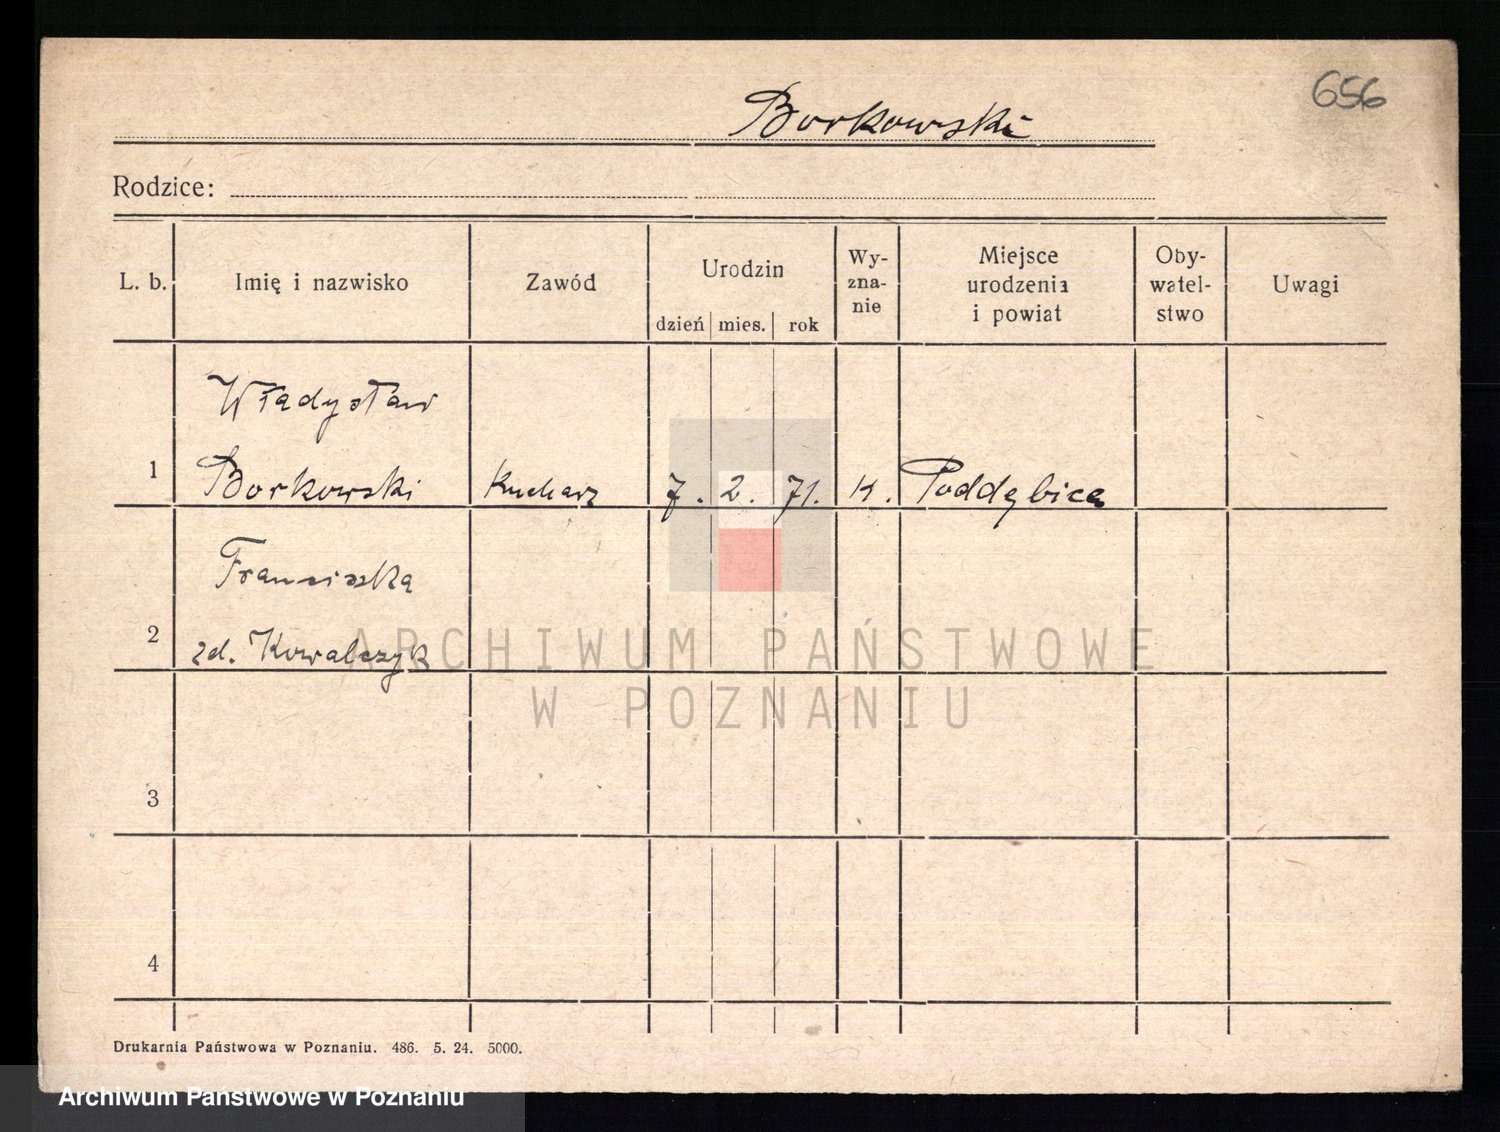 656
Borkowski
Rodzice:
L. b. Imię i nazwisko Zawód Urodzin dzień mies. rok Wy-zna-nie Miejsce urodzenia i powiat Oby-watel-stwo Uwagi
Władysław
1 Borkowski Kucharz 7. 2. 71. K. Poddębice
Franciszka
2 zd. Kowalczyk
3
4
ARCHIWUM PAŃSTWOWE
W POZNANIU
Drukarnia Państwowa w Poznaniu. 486. 5. 24. 5000.
Archiwum Państwowe w Poznaniu